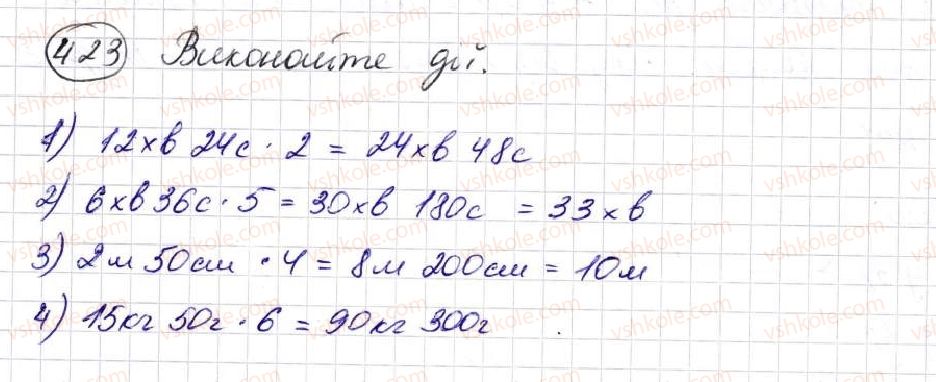 423 Виконайте дії.
1) 12хв 24с · 2 = 24хв 48с
2) 6хв 36с · 5 = 30хв 180с = 33хв
3) 2м 50см · 4 = 8м 200см = 10м
4) 15кг 50г · 6 = 90кг 300г
vshkole.com